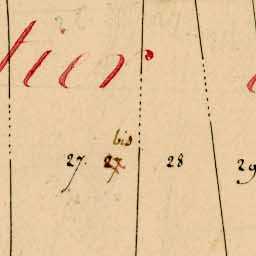 tier
bis
27. 27 28 29